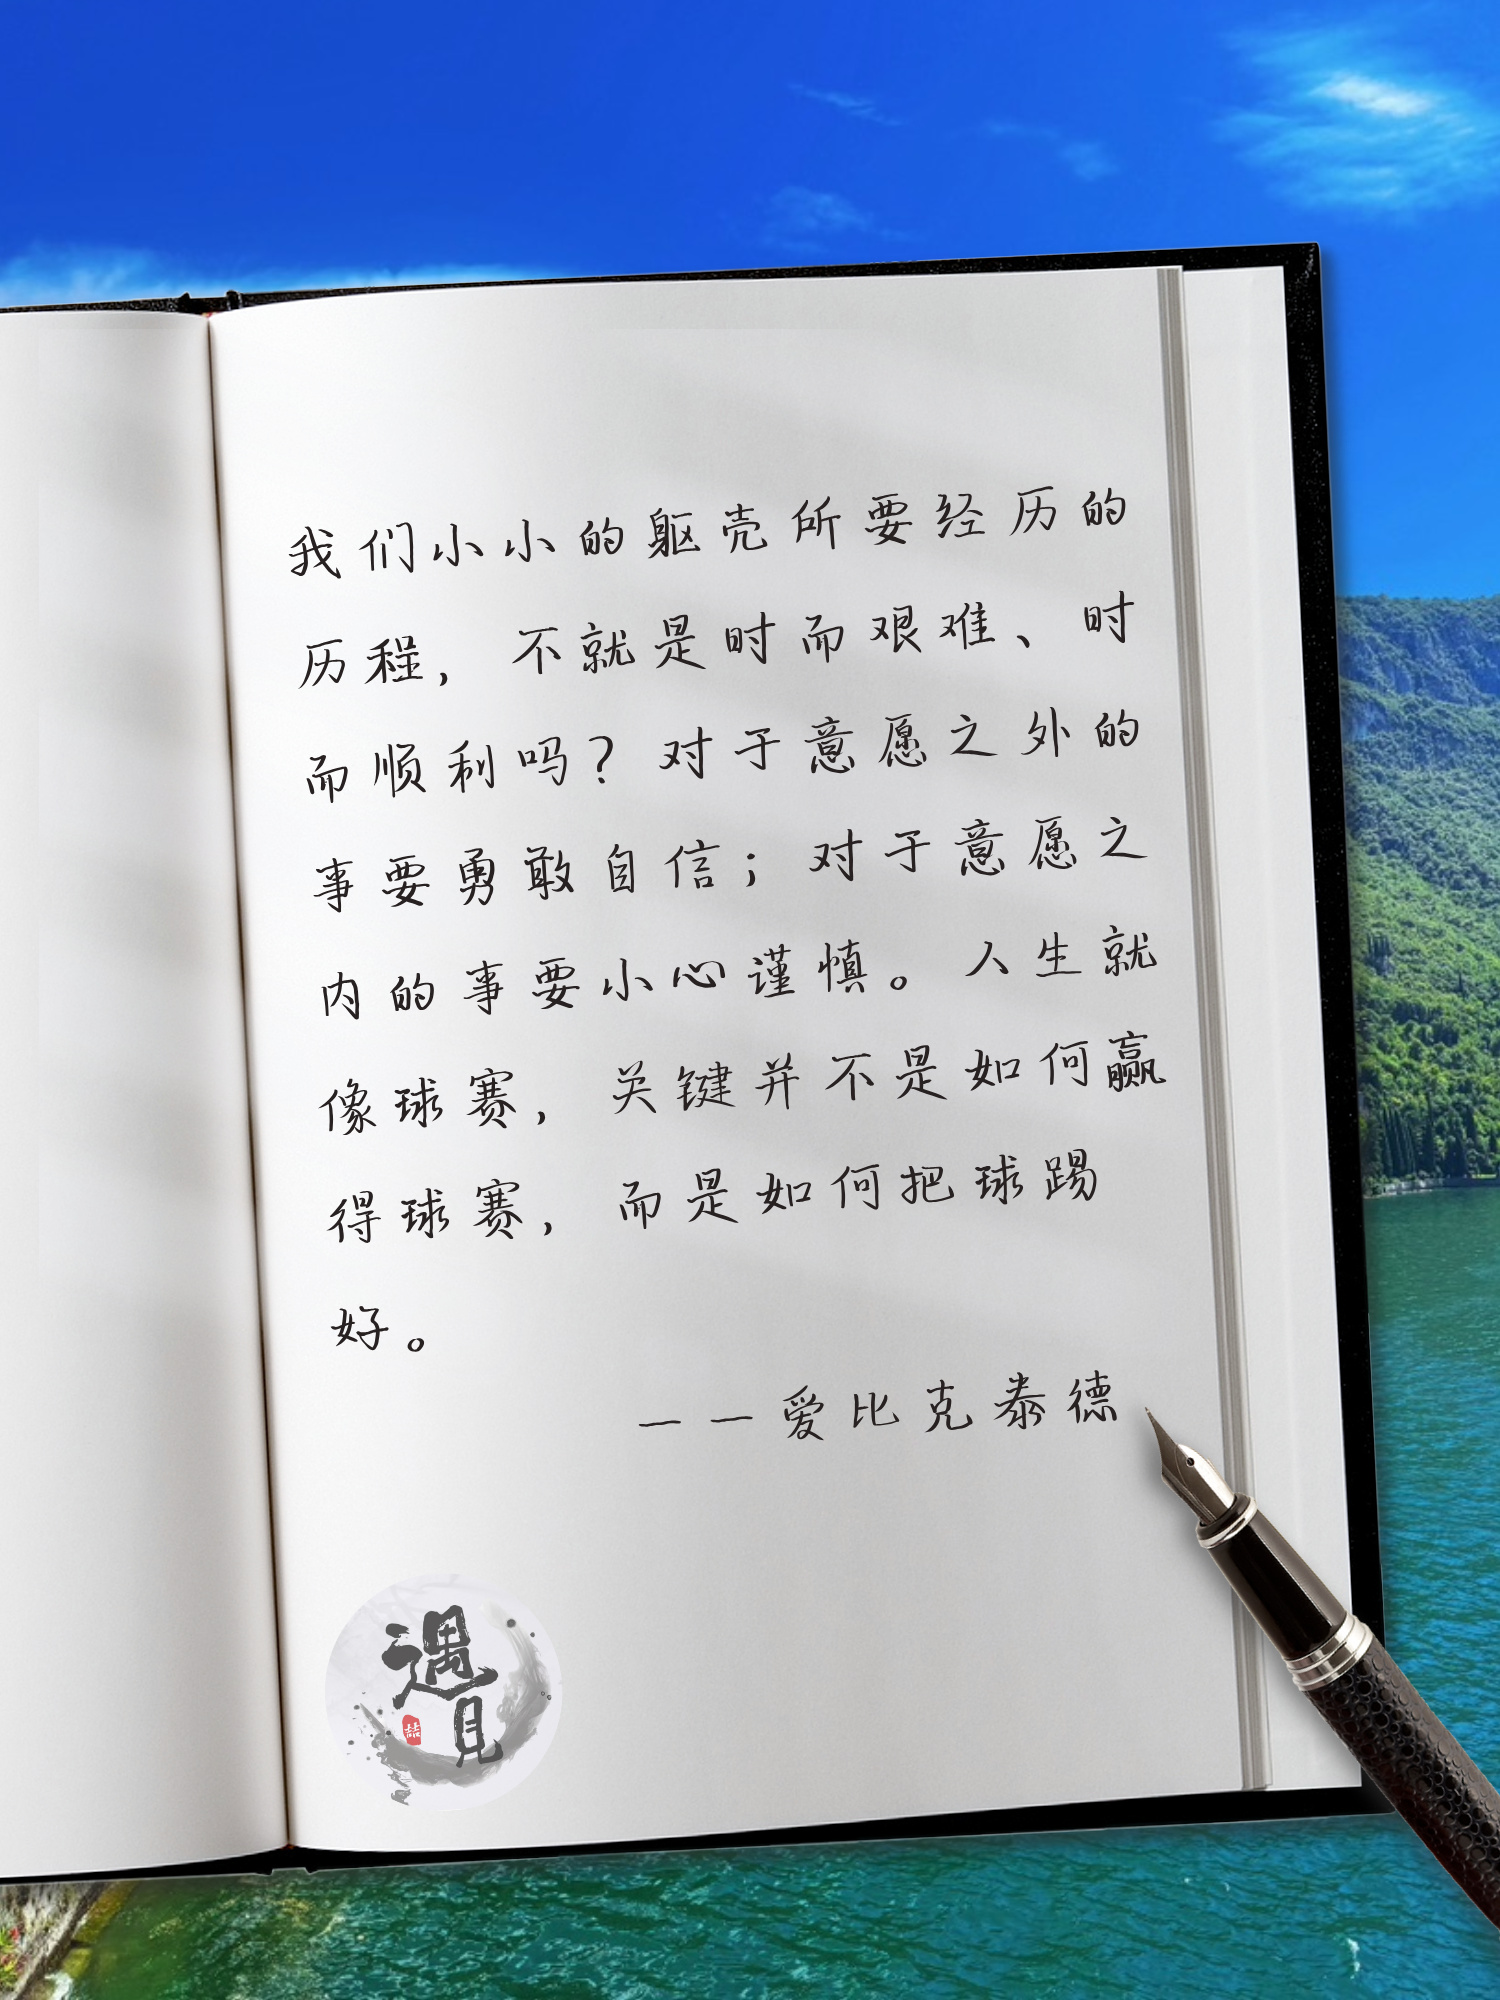 我们小小的躯壳所要经历的
历程，不就是时而艰难、时
而顺利吗？对于意愿之外的
事要勇敢自信；对于意愿之
内的事要小心谨慎。人生就
像球赛，关键并不是如何赢
得球赛，而是如何把球踢
好。
——爱比克泰德
遇
见
喆